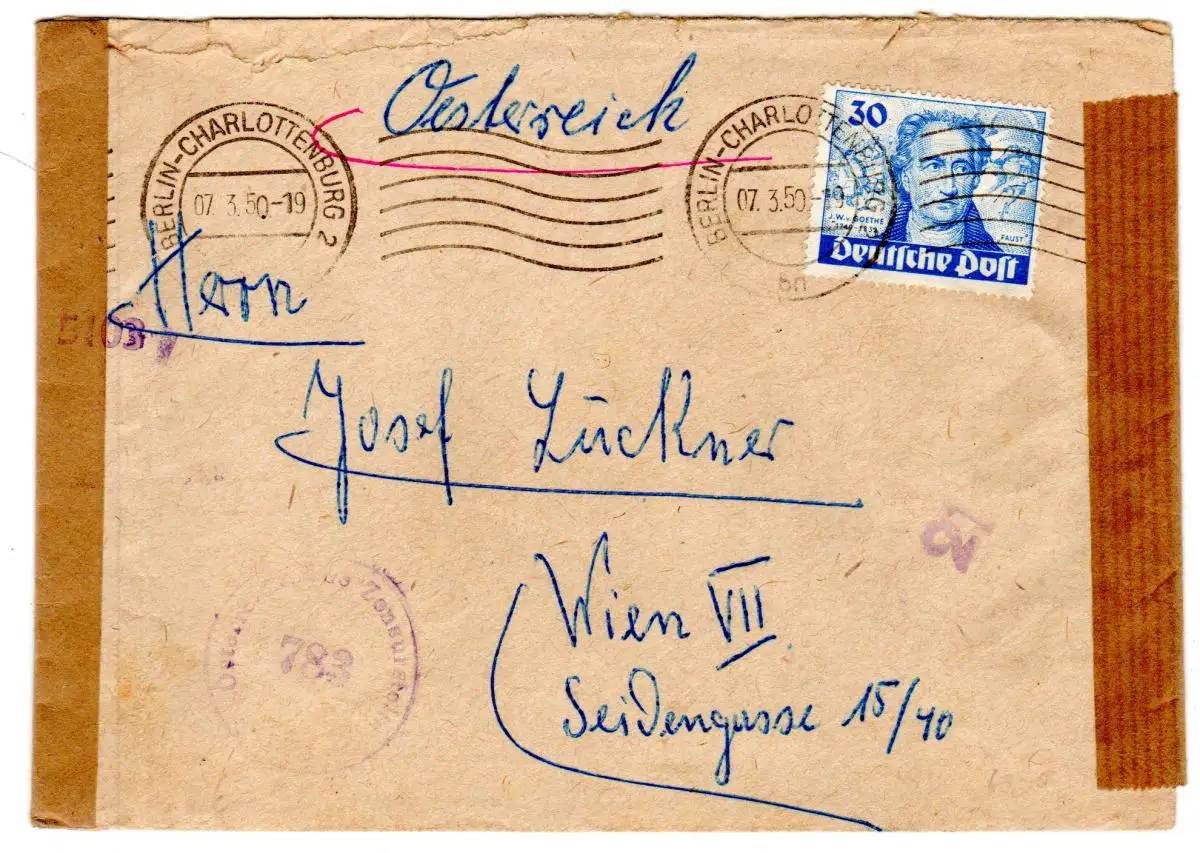 Oesterreich
BERLIN-CHARLOTTENBURG 2
07. 3.50-19
BERLIN-CHARLOTTENBURG
07. 3.50-19
bn
30
J.W.v. GOETHE
1749-1832
FAUST
Deutsche Post
Herrn
Josef Lückner
Wien VII
Seidengasse 15/40
783